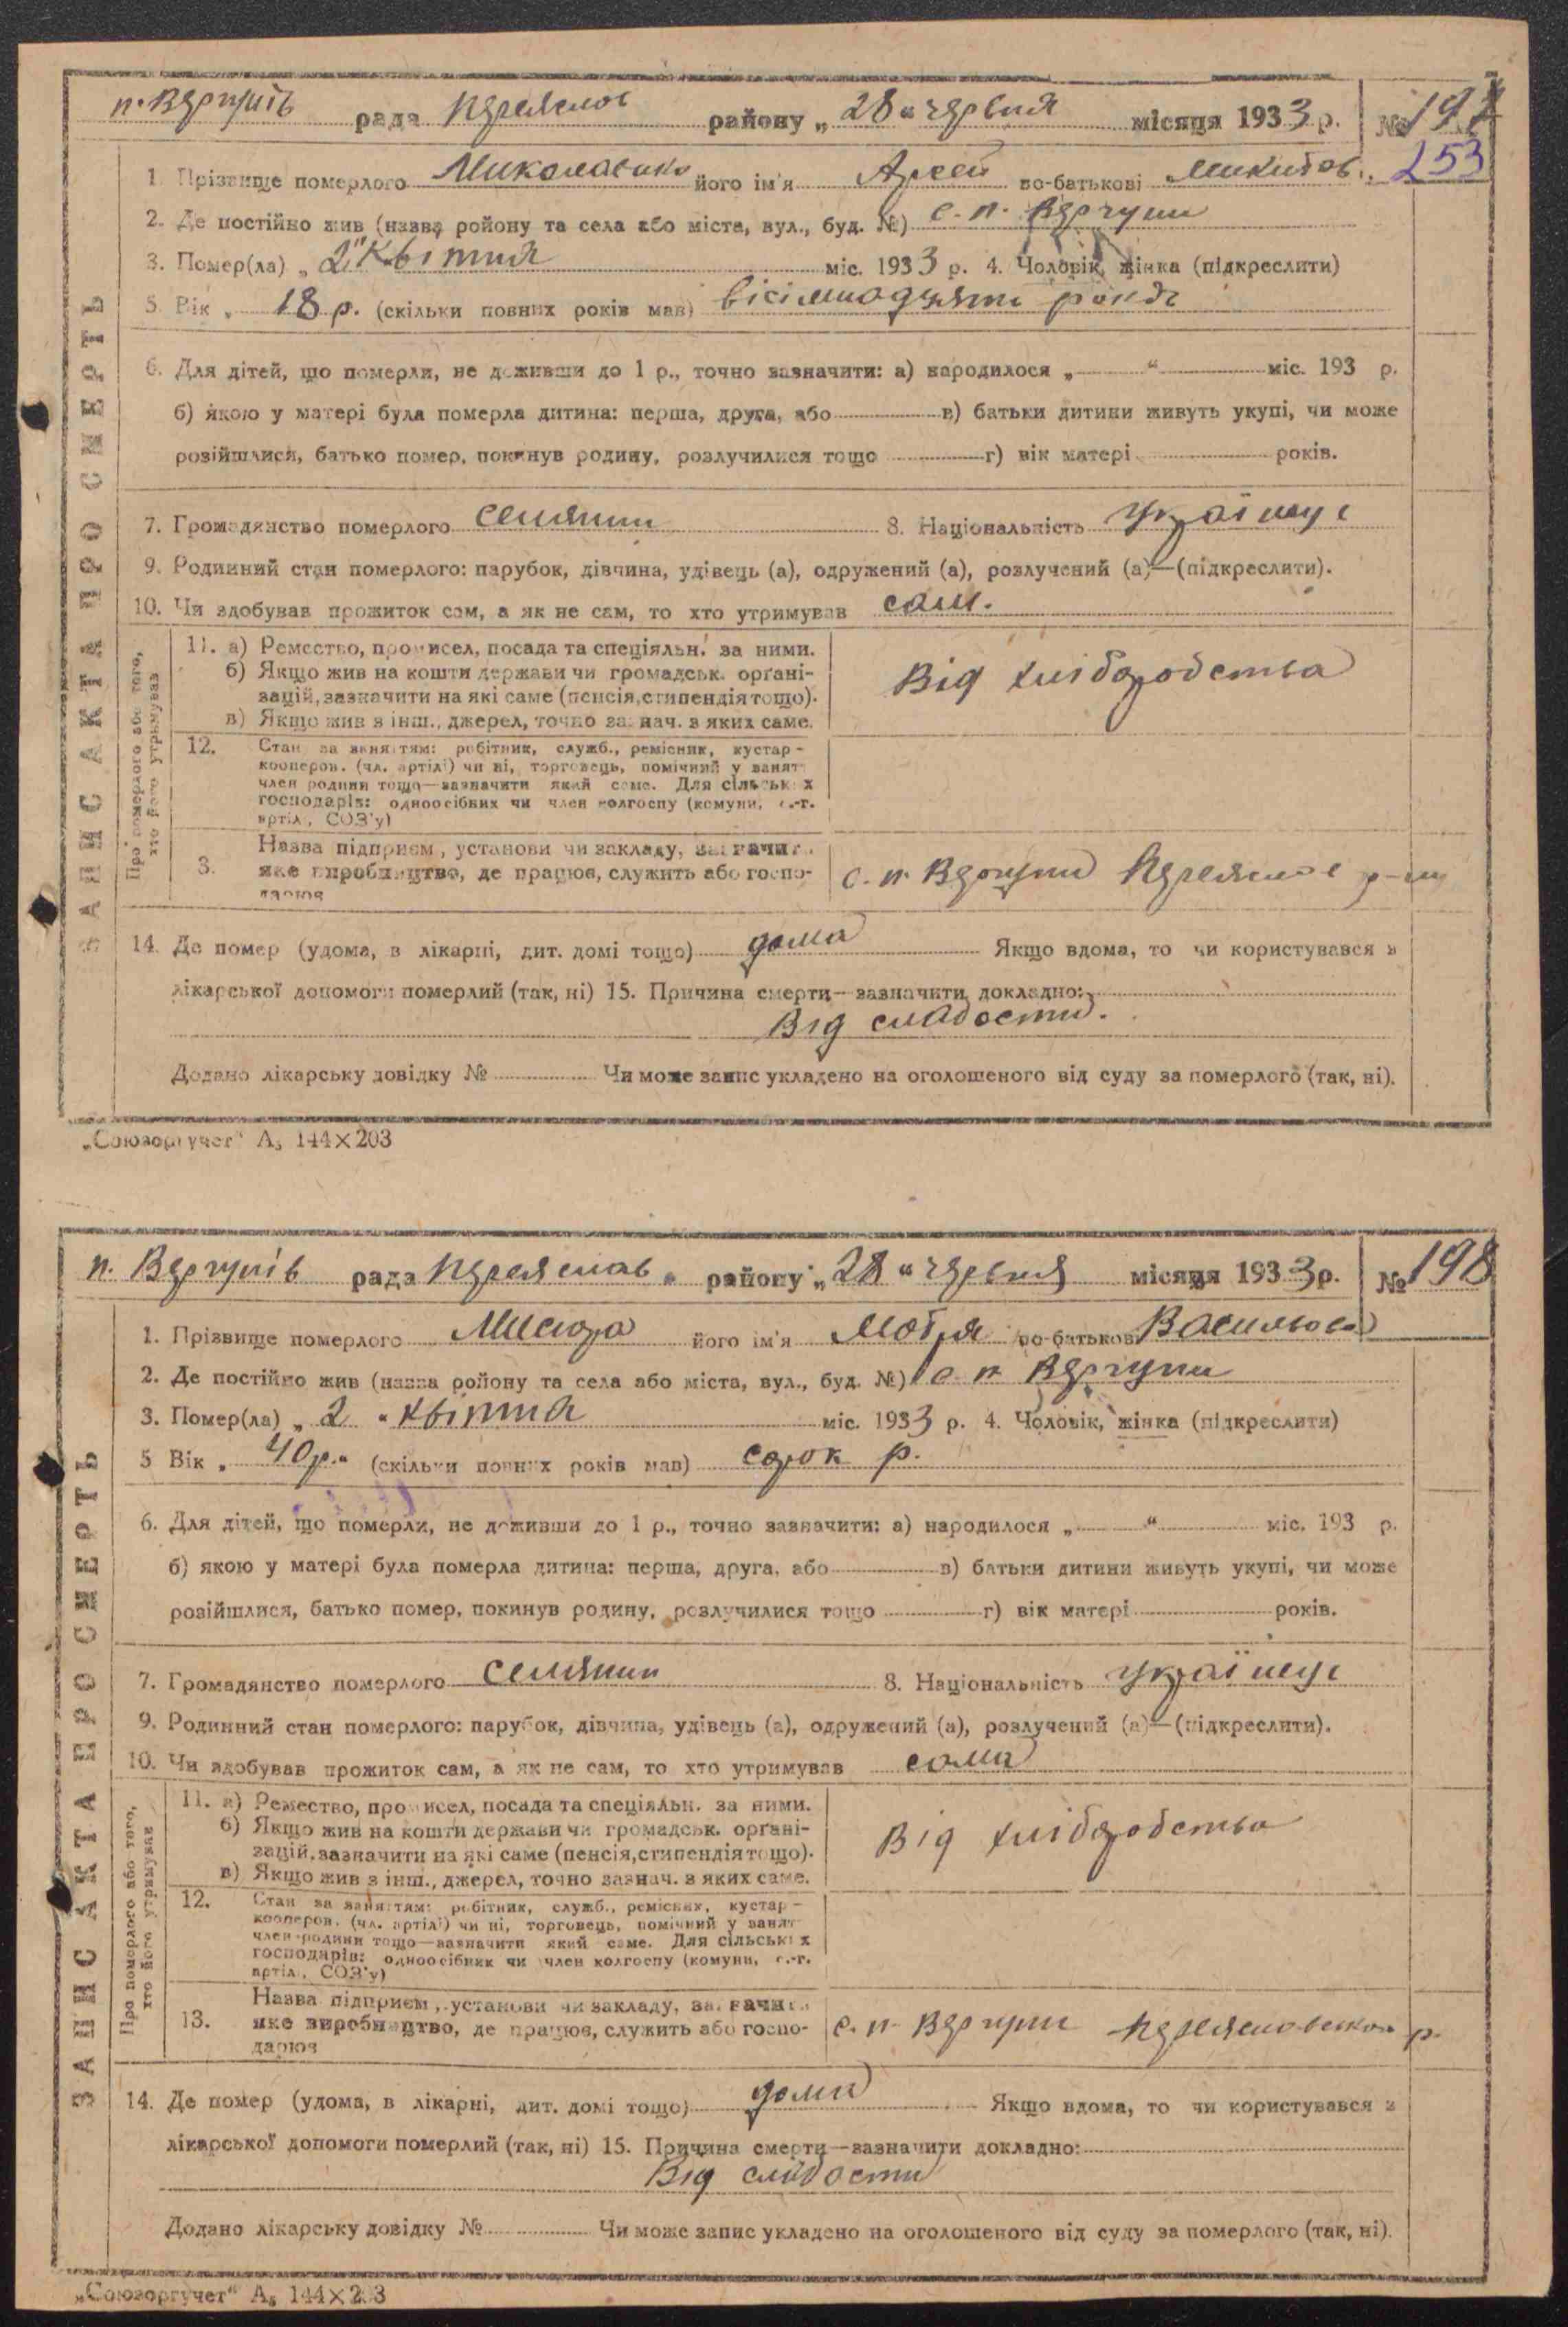 п. Вергунів рада Переяслов району „28" червня місяця 1933 р. № 197
1. Прізвище померлого Миколаєнко його ім'я по-батькові Микитов. 253
2. Де постійно жив (назва ройону та села або міста, вул., буд. №) с. п. Вергуни
3. Помер(ла) „2" квітня міс. 1933 р. 4. Чоловік, жінка (підкреслити)
5. Вік „ 18 р. (скільки повних років мав) вісімнадцять років
6. Для дітей, що померли, не доживши до 1 р., точно зазначити: а) народилося „ " міс. 193 р.
б) якою у матері була померла дитина: перша, друга, або в) батьки дитини живуть укупі, чи може
розійшлися, батько помер, покинув родину, розлучилися тощо г) вік матері років.
7. Громадянство померлого селянин 8. Національність українец
9. Родинний стан померлого: парубок, дівчина, удівець (а), одружений (а), розлучений (а)—(підкреслити).
10. Чи здобував прожиток сам, а як не сам, то хто утримував сам.
ЗАПИС АКТА ПРО СМЕРТЬ
Про померлого або того,
хто його утримував
11. а) Ремество, промисел, посада та спеціяльн. за ними.
б) Якщо жив на кошти держави чи громадськ. органі-
зацій, зазначити на які саме (пенсія, стипендія тощо).
в) Якщо жив з інш., джерел, точно зазнач. з яких саме.
Від хліборобства
12. Стан за заняттям: робітник, служб., ремісник, кустар-
кооперов. (чл. артілі) чи ні, торговець, помічний у занят
член родини тощо—зазначити який саме. Для сільських
господарів: одноосібник чи член колгоспу (комуни, с.-г.
артілі, СОЗ'у)
3. Назва підприєм., установи чи закладу, зазначити
яке виробництво, де працює, служить або госпо-
дарює
с. п. Вергуни Переяслов р-ну
14. Де помер (удома, в лікарні, дит. домі тощо) дома Якщо вдома, то чи користувався з
лікарської допомоги померлий (так, ні) 15. Причина смерти—зазначити докладно:
Від слабости.
Додано лікарську довідку № Чи може запис укладено на оголошеного від суду за померлого (так, ні).
„Союзоргучет" А₅ 144×203
п. Вергунів рада Переяслов. району „28" червня місяця 1933 р. № 198
1. Прізвище померлого Мисюра його ім'я Мотря по-батькові Васильов
2. Де постійно жив (назва ройону та села або міста, вул., буд. №) с. п. Вергуни
3. Помер(ла) „2" квітня міс. 1933 р. 4. Чоловік, жінка (підкреслити)
5 Вік „ 40 р." (скільки повних років мав) сорок р.
6. Для дітей, що померли, не доживши до 1 р., точно зазначити: а) народилося „ " міс. 193 р.
б) якою у матері була померла дитина: перша, друга, або в) батьки дитини живуть укупі, чи може
розійшлися, батько помер, покинув родину, розлучилися тощо г) вік матері років.
7. Громадянство померлого селянин 8. Національність українец
9. Родинний стан померлого: парубок, дівчина, удівець (а), одружений (а), розлучений (а)—(підкреслити).
10. Чи здобував прожиток сам, а як не сам, то хто утримував сама
ЗАПИС АКТА ПРО СМЕРТЬ
Про померлого або того,
хто його утримував
11. а) Ремество, промисел, посада та спеціяльн. за ними.
б) Якщо жив на кошти держави чи громадськ. органі-
зацій, зазначити на які саме (пенсія, стипендія тощо).
в) Якщо жив з інш., джерел, точно зазнач. з яких саме.
Від хліборобства
12. Стан за заняттям: робітник, служб., ремісник, кустар-
кооперов. (чл. артілі) чи ні, торговець, помічний у занят
член родини тощо—зазначити який саме. Для сільських
господарів: одноосібник чи член колгоспу (комуни, с.-г.
артілі, СОЗ'у)
13. Назва підприєм., установи чи закладу, зазначити
яке виробництво, де працює, служить або госпо-
дарює
с. п. Вергуни Переясловського р.
14. Де помер (удома, в лікарні, дит. домі тощо) дома Якщо вдома, то чи користувався з
лікарської допомоги померлий (так, ні) 15. Причина смерти—зазначити докладно:
Від слабости
Додано лікарську довідку № Чи може запис укладено на оголошеного від суду за померлого (так, ні).
„Союзоргучет" А₅ 144×203